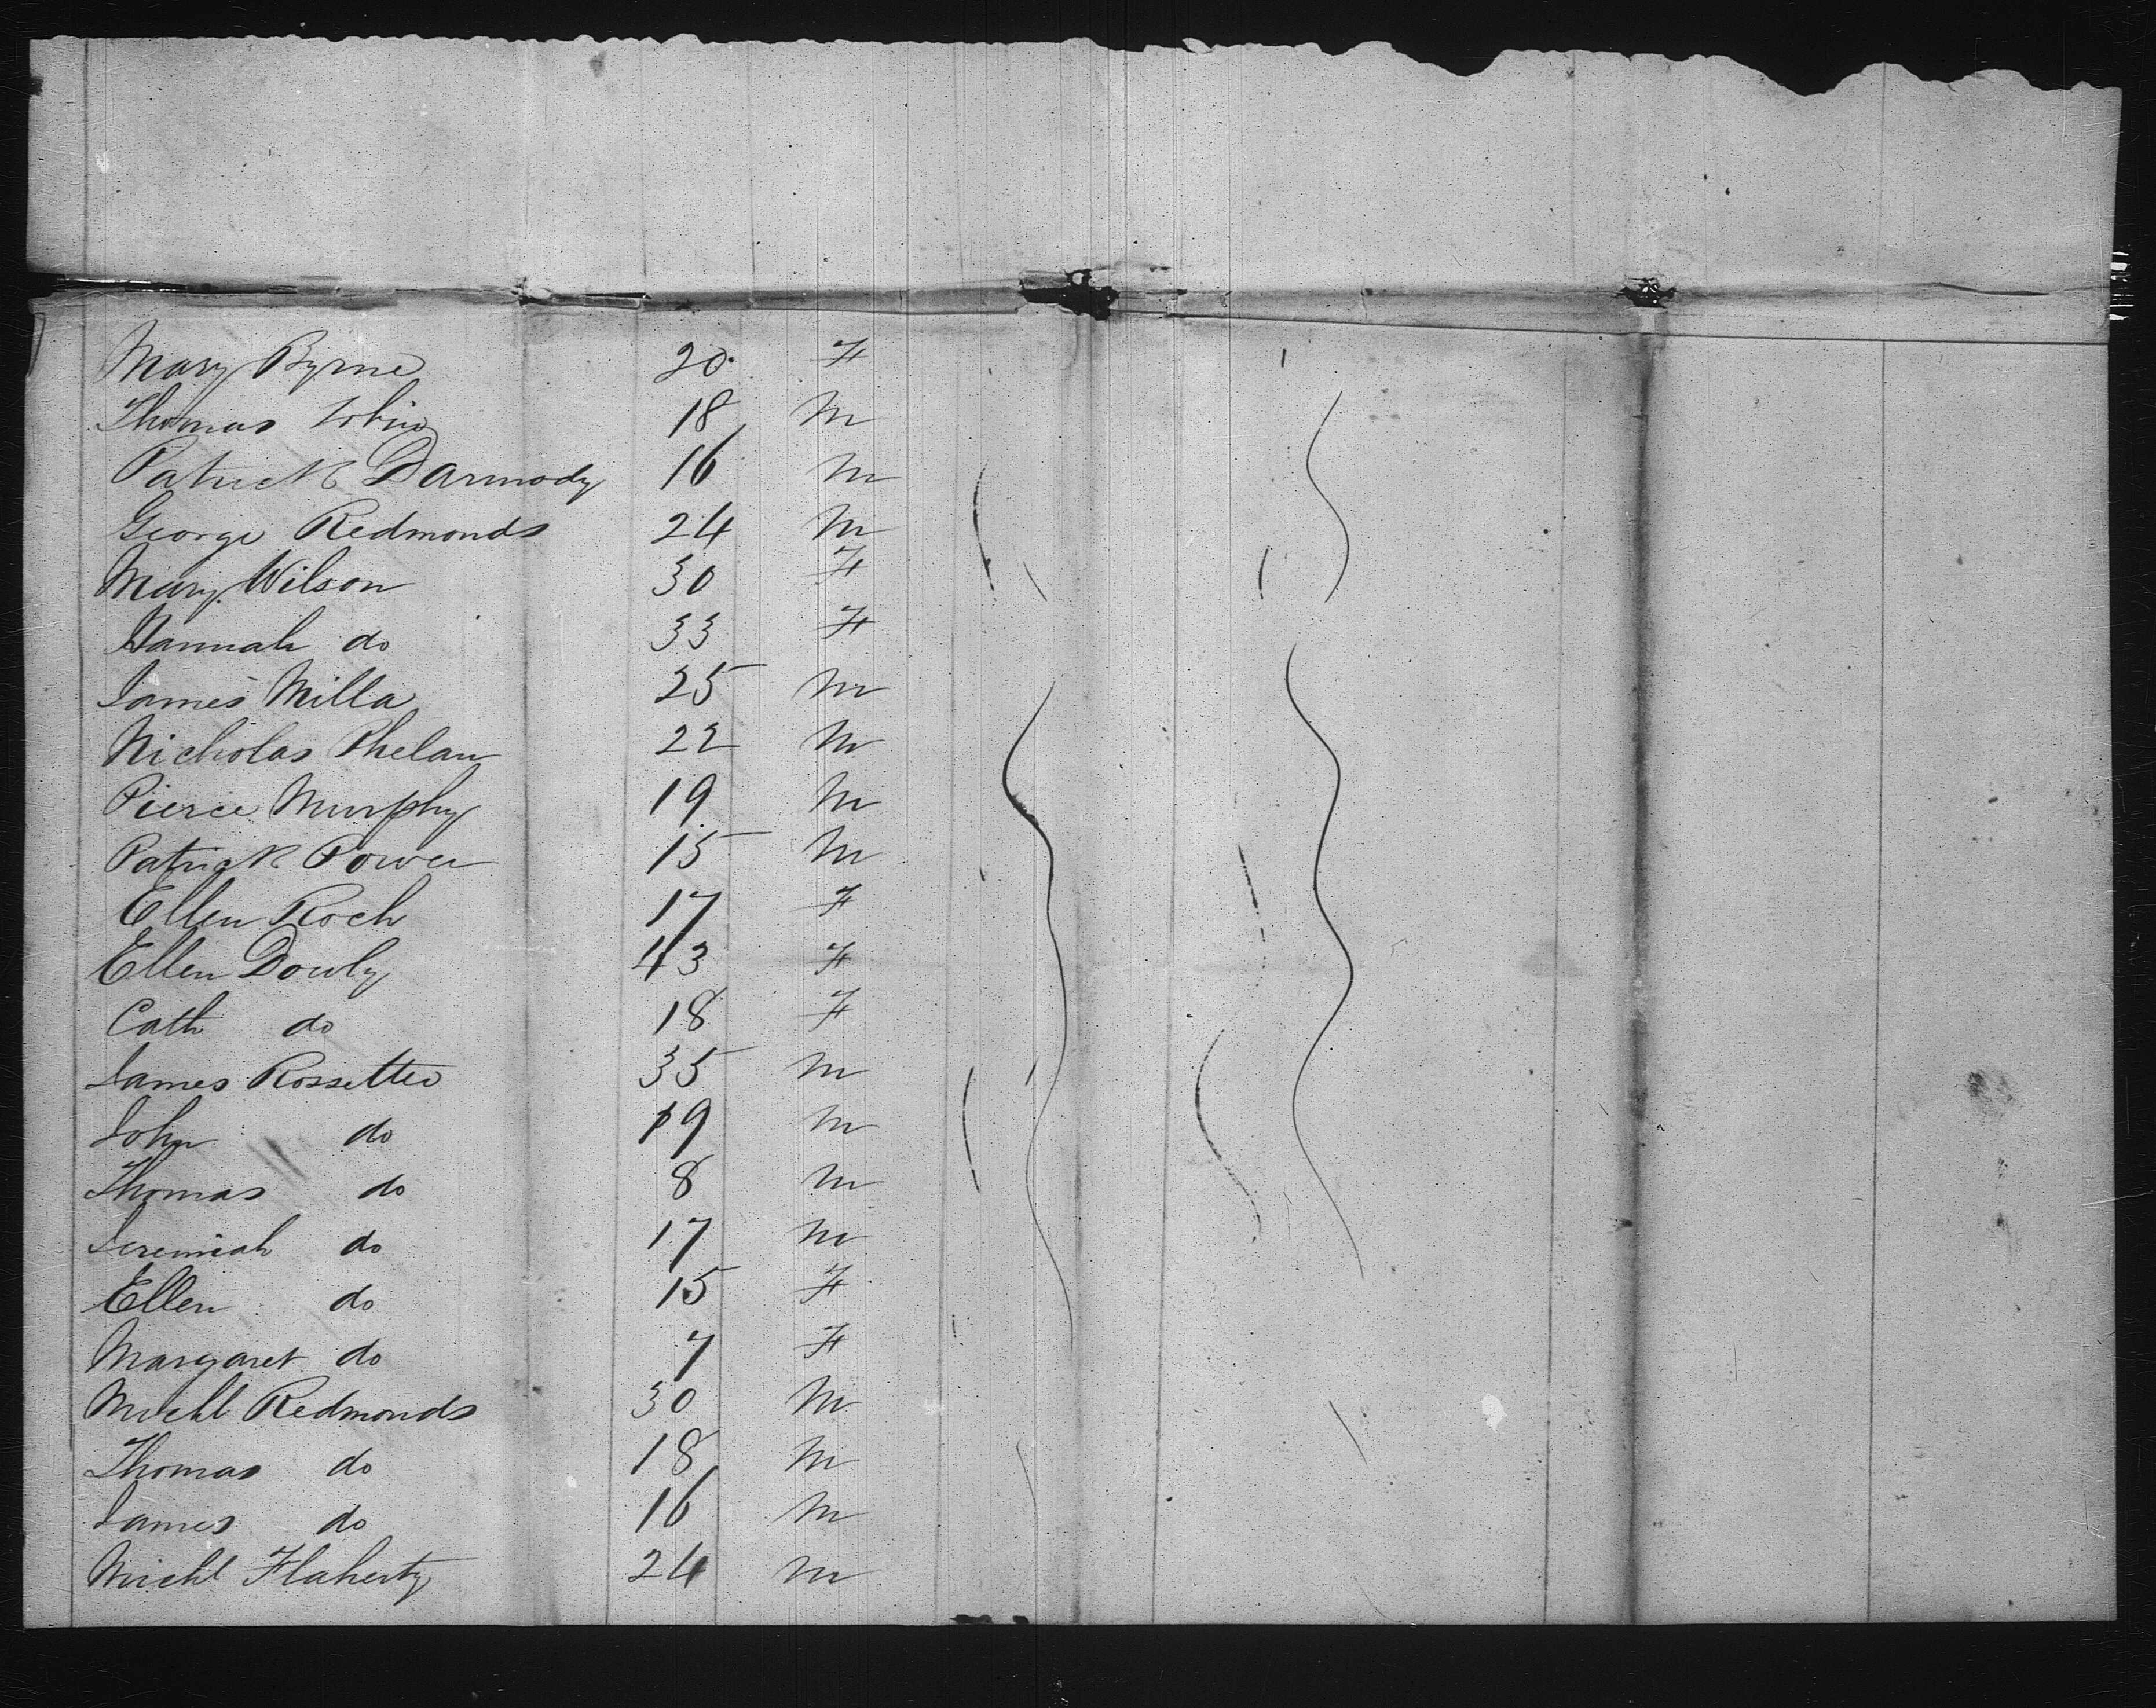 Mary Byrne 20 F
Thomas Tobin 18 M
Patrick Darmody 16 M
George Redmonds 24 M
Mary Wilson 30 F
Hannah do 33 F
James Milla 25 M
Nicholas Phelan 22 M
Pierce Murphy 19 M
Patrick Power 15 M
Ellen Roch 17 F
Ellen Dowly 43 F
Cath do 18 F
James Rossetter 35 M
John do 19 M
Thomas do 8 M
Jeremiah do 17 M
Ellen do 15 F
Margaret do 7 F
Michl Redmonds 30 M
Thomas do 18 M
James do 16 M
Michl Flaherty 24 M